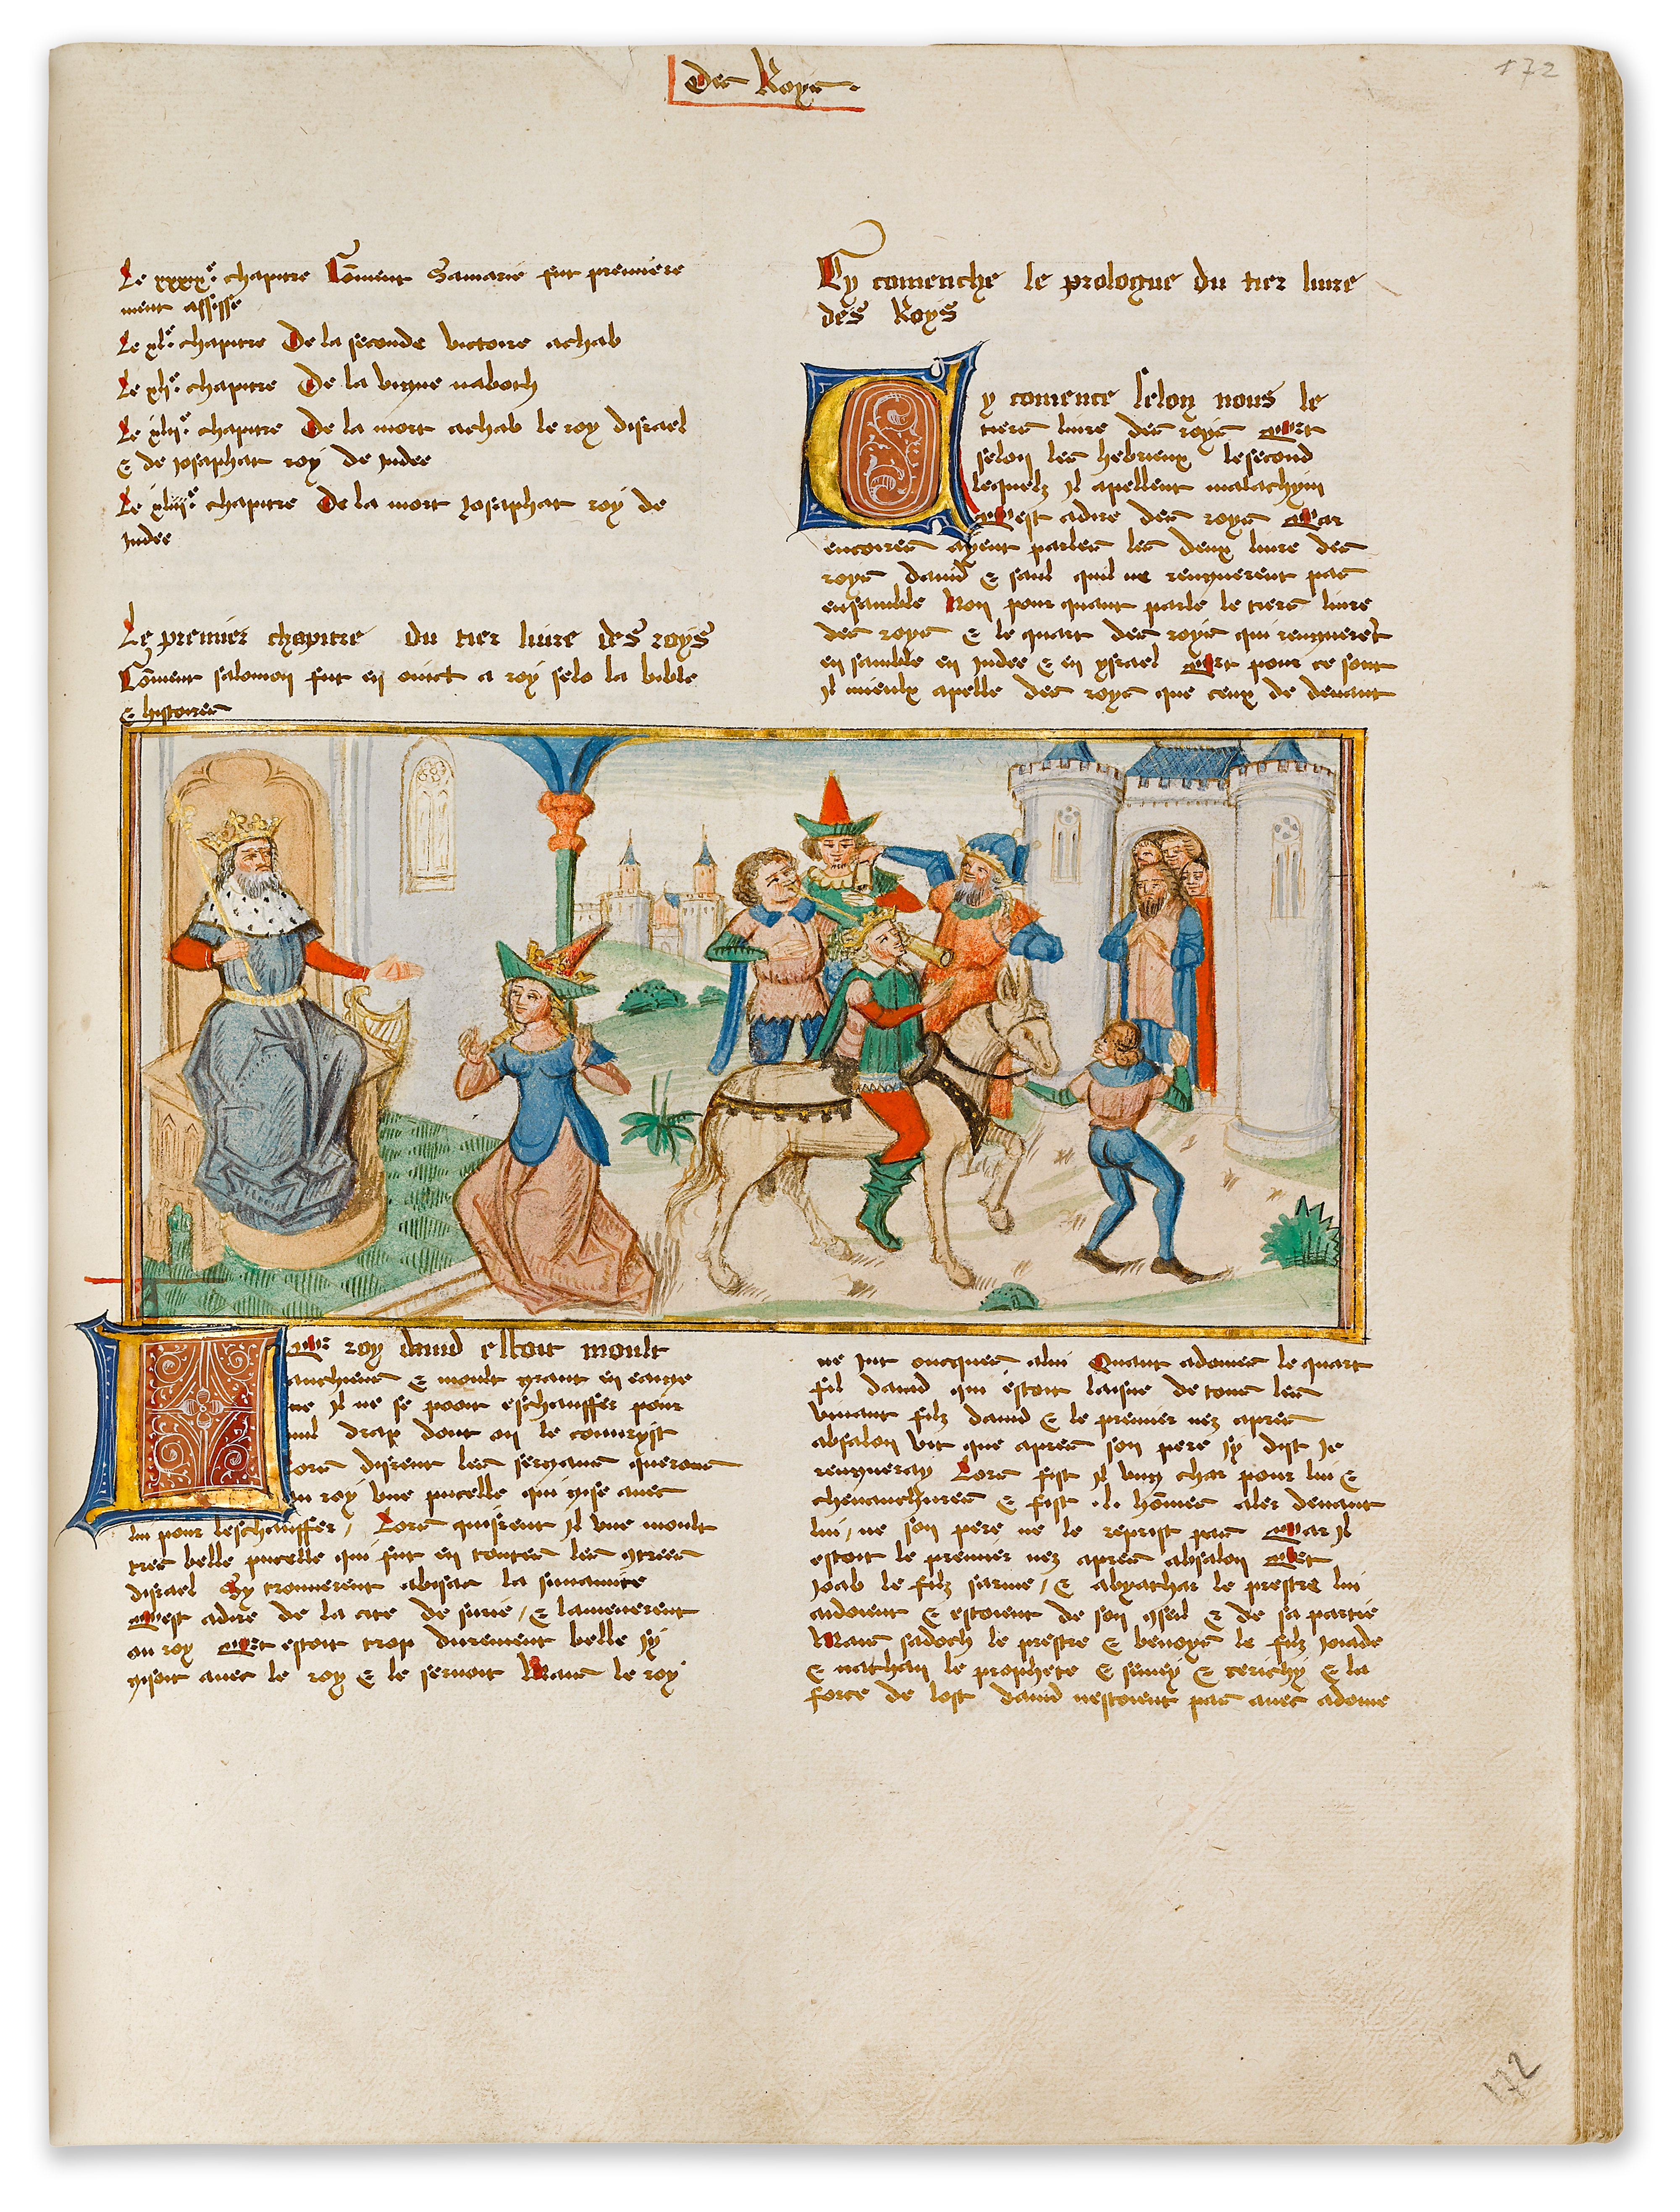 Des Roys.
172
Le xxxix.e chapitre Cōment Samarie fut premiere
ment assisse
Le xl.e chapitre De la seconde victoire achab
Le xli.e chapitre De la vigne naboth
Le xlii.e chapitre De la mort achab le roy disrael
& de iosaphat roy de Iudee
Le xliii.e chapitre De la mort Josaphat roy de
Iudee
Le premier chapitre du tier liure des roys
Cōment salomon fut en oinct a roy selō la bible
& histoires
Cy comenche le prologue du tier liure
des Roys
Cy comence selon nous le
tiers liure des roys Et
selon les hebrieux le second
lequelz Il apellent malachym
Cest adire des roys Car
encoires ayent parler les deux liure des
roys dauid & saul quil ne rengnerent pas
ensamble Non pour quant parle le tiers liure
des roys & le quart des roys qui rengneret
en samble en Iudee & en ysrael Et pour ce sont
Il mieulx apelle des roys que ceux de deuant
Le roy dauid estoit moult
anchiens & moult grant en eaige
ne Il ne se pooit eschauffer pour
nul drap dont on le couuryst
Lors disrent les sergans querons
au roy vne pucelle qui gise auec
lui pour leschauffer / Lors quisrent Il vne moult
tres belle pucelle qui fut en toutes les 9trees
disrael Sy trouuerent abisac la sunamite
Cest adire de la cite de surie / & lamenerent
au roy Et estoit trop durement belle sy
gisoit auec le roy & le seruoit Mais le roy
ne Jut oncques alui Quant adonies le quart
fil dauid qui estoit laisne de tous les
viuant filz dauid & le premier nez apres
absalon vit que apres son pere sy dist Je
rengneray Lors fist Il vng char pour lui &
cheuauchures & fist .l. hōmes aler deuant
lui / ne son pere ne le reprist pas Car Il
estoit le premier nez apres absalon Et
Joab le filz saruie / & abyathar le prestre lui
aidoient & estoient de son 9seil & de sa partie
Mais sadoch le prestre & benoys le filz ioiade
& nathan le prophete & semey & cerichy & la
force de lost dauid nestoient pas auec adonie
172